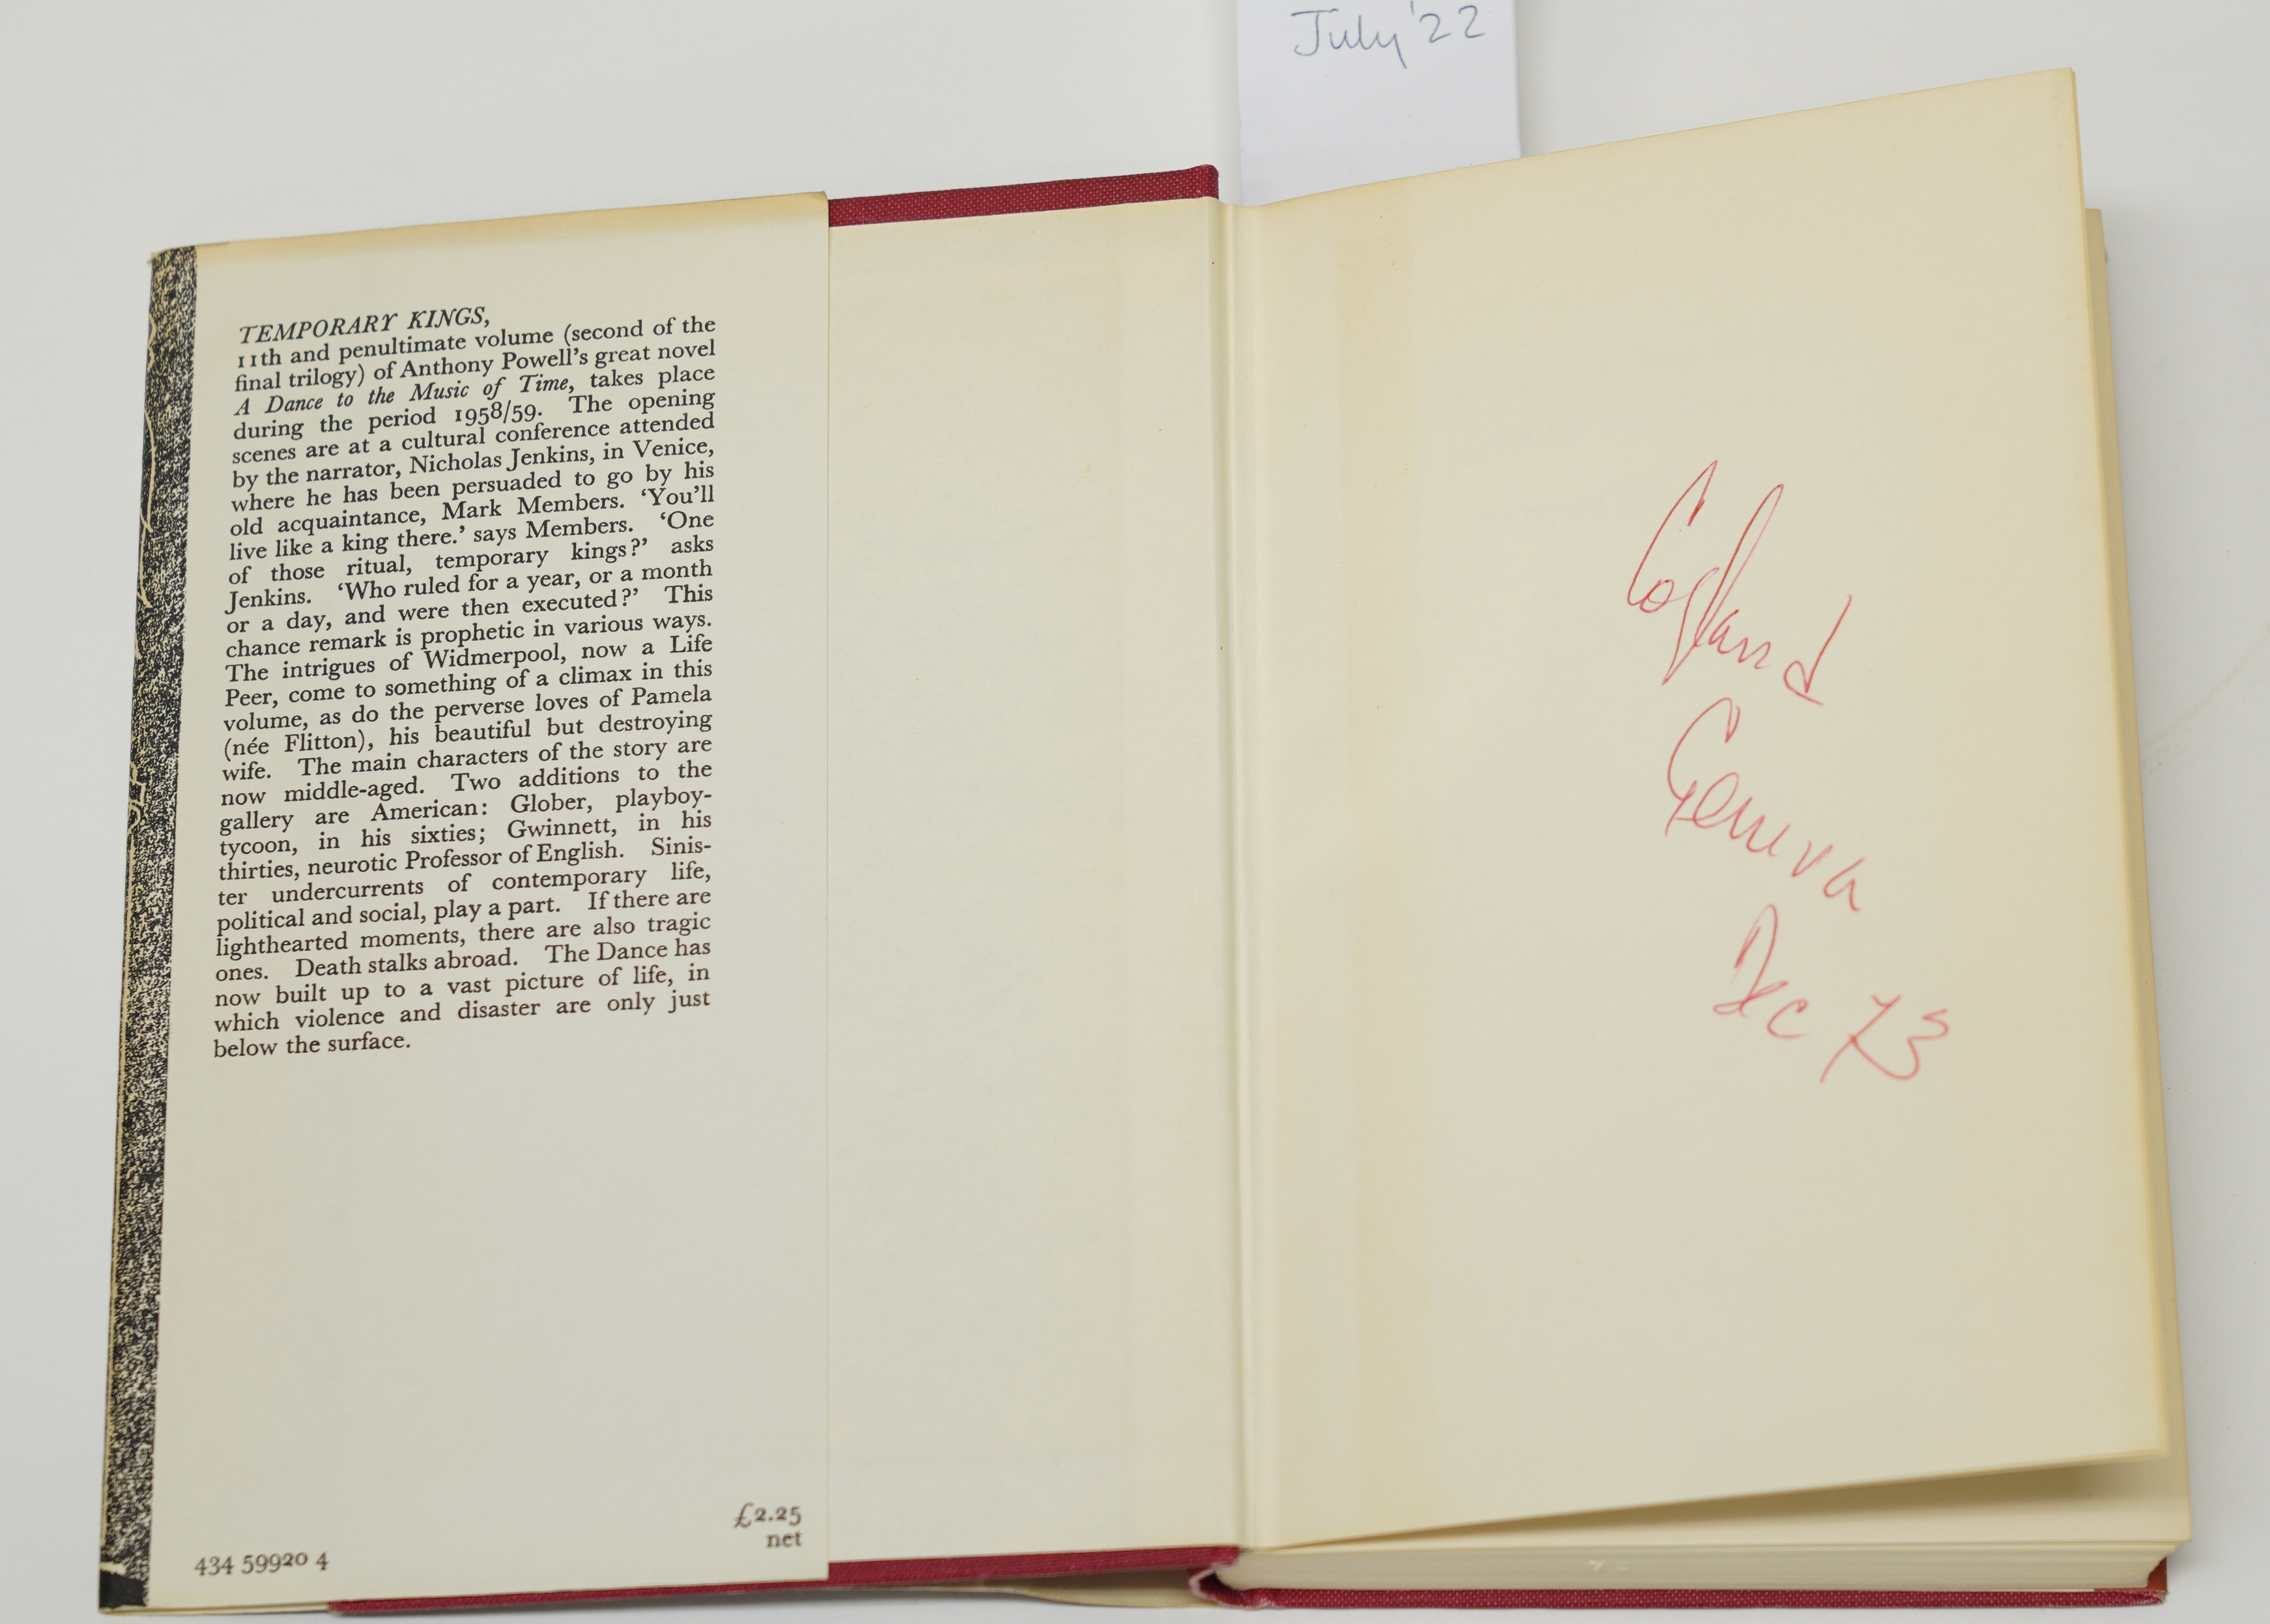 July '22
TEMPORARY KINGS,
11th and penultimate volume (second of the
final trilogy) of Anthony Powell's great novel
A Dance to the Music of Time, takes place
during the period 1958/59. The opening
scenes are at a cultural conference attended
by the narrator, Nicholas Jenkins, in Venice,
where he has been persuaded to go by his
old acquaintance, Mark Members. ‘You'll
live like a king there.’ says Members. ‘One
of those ritual, temporary kings?’ asks
Jenkins. ‘Who ruled for a year, or a month
or a day, and were then executed?’ This
chance remark is prophetic in various ways.
The intrigues of Widmerpool, now a Life
Peer, come to something of a climax in this
volume, as do the perverse loves of Pamela
(née Flitton), his beautiful but destroying
wife. The main characters of the story are
now middle-aged. Two additions to the
gallery are American: Glober, playboy-
tycoon, in his sixties; Gwinnett, in his
thirties, neurotic Professor of English. Sinis-
ter undercurrents of contemporary life,
political and social, play a part. If there are
lighthearted moments, there are also tragic
ones. Death stalks abroad. The Dance has
now built up to a vast picture of life, in
which violence and disaster are only just
below the surface.
£2.25
net
434 59920 4
Copland
Geneva
Dec 73